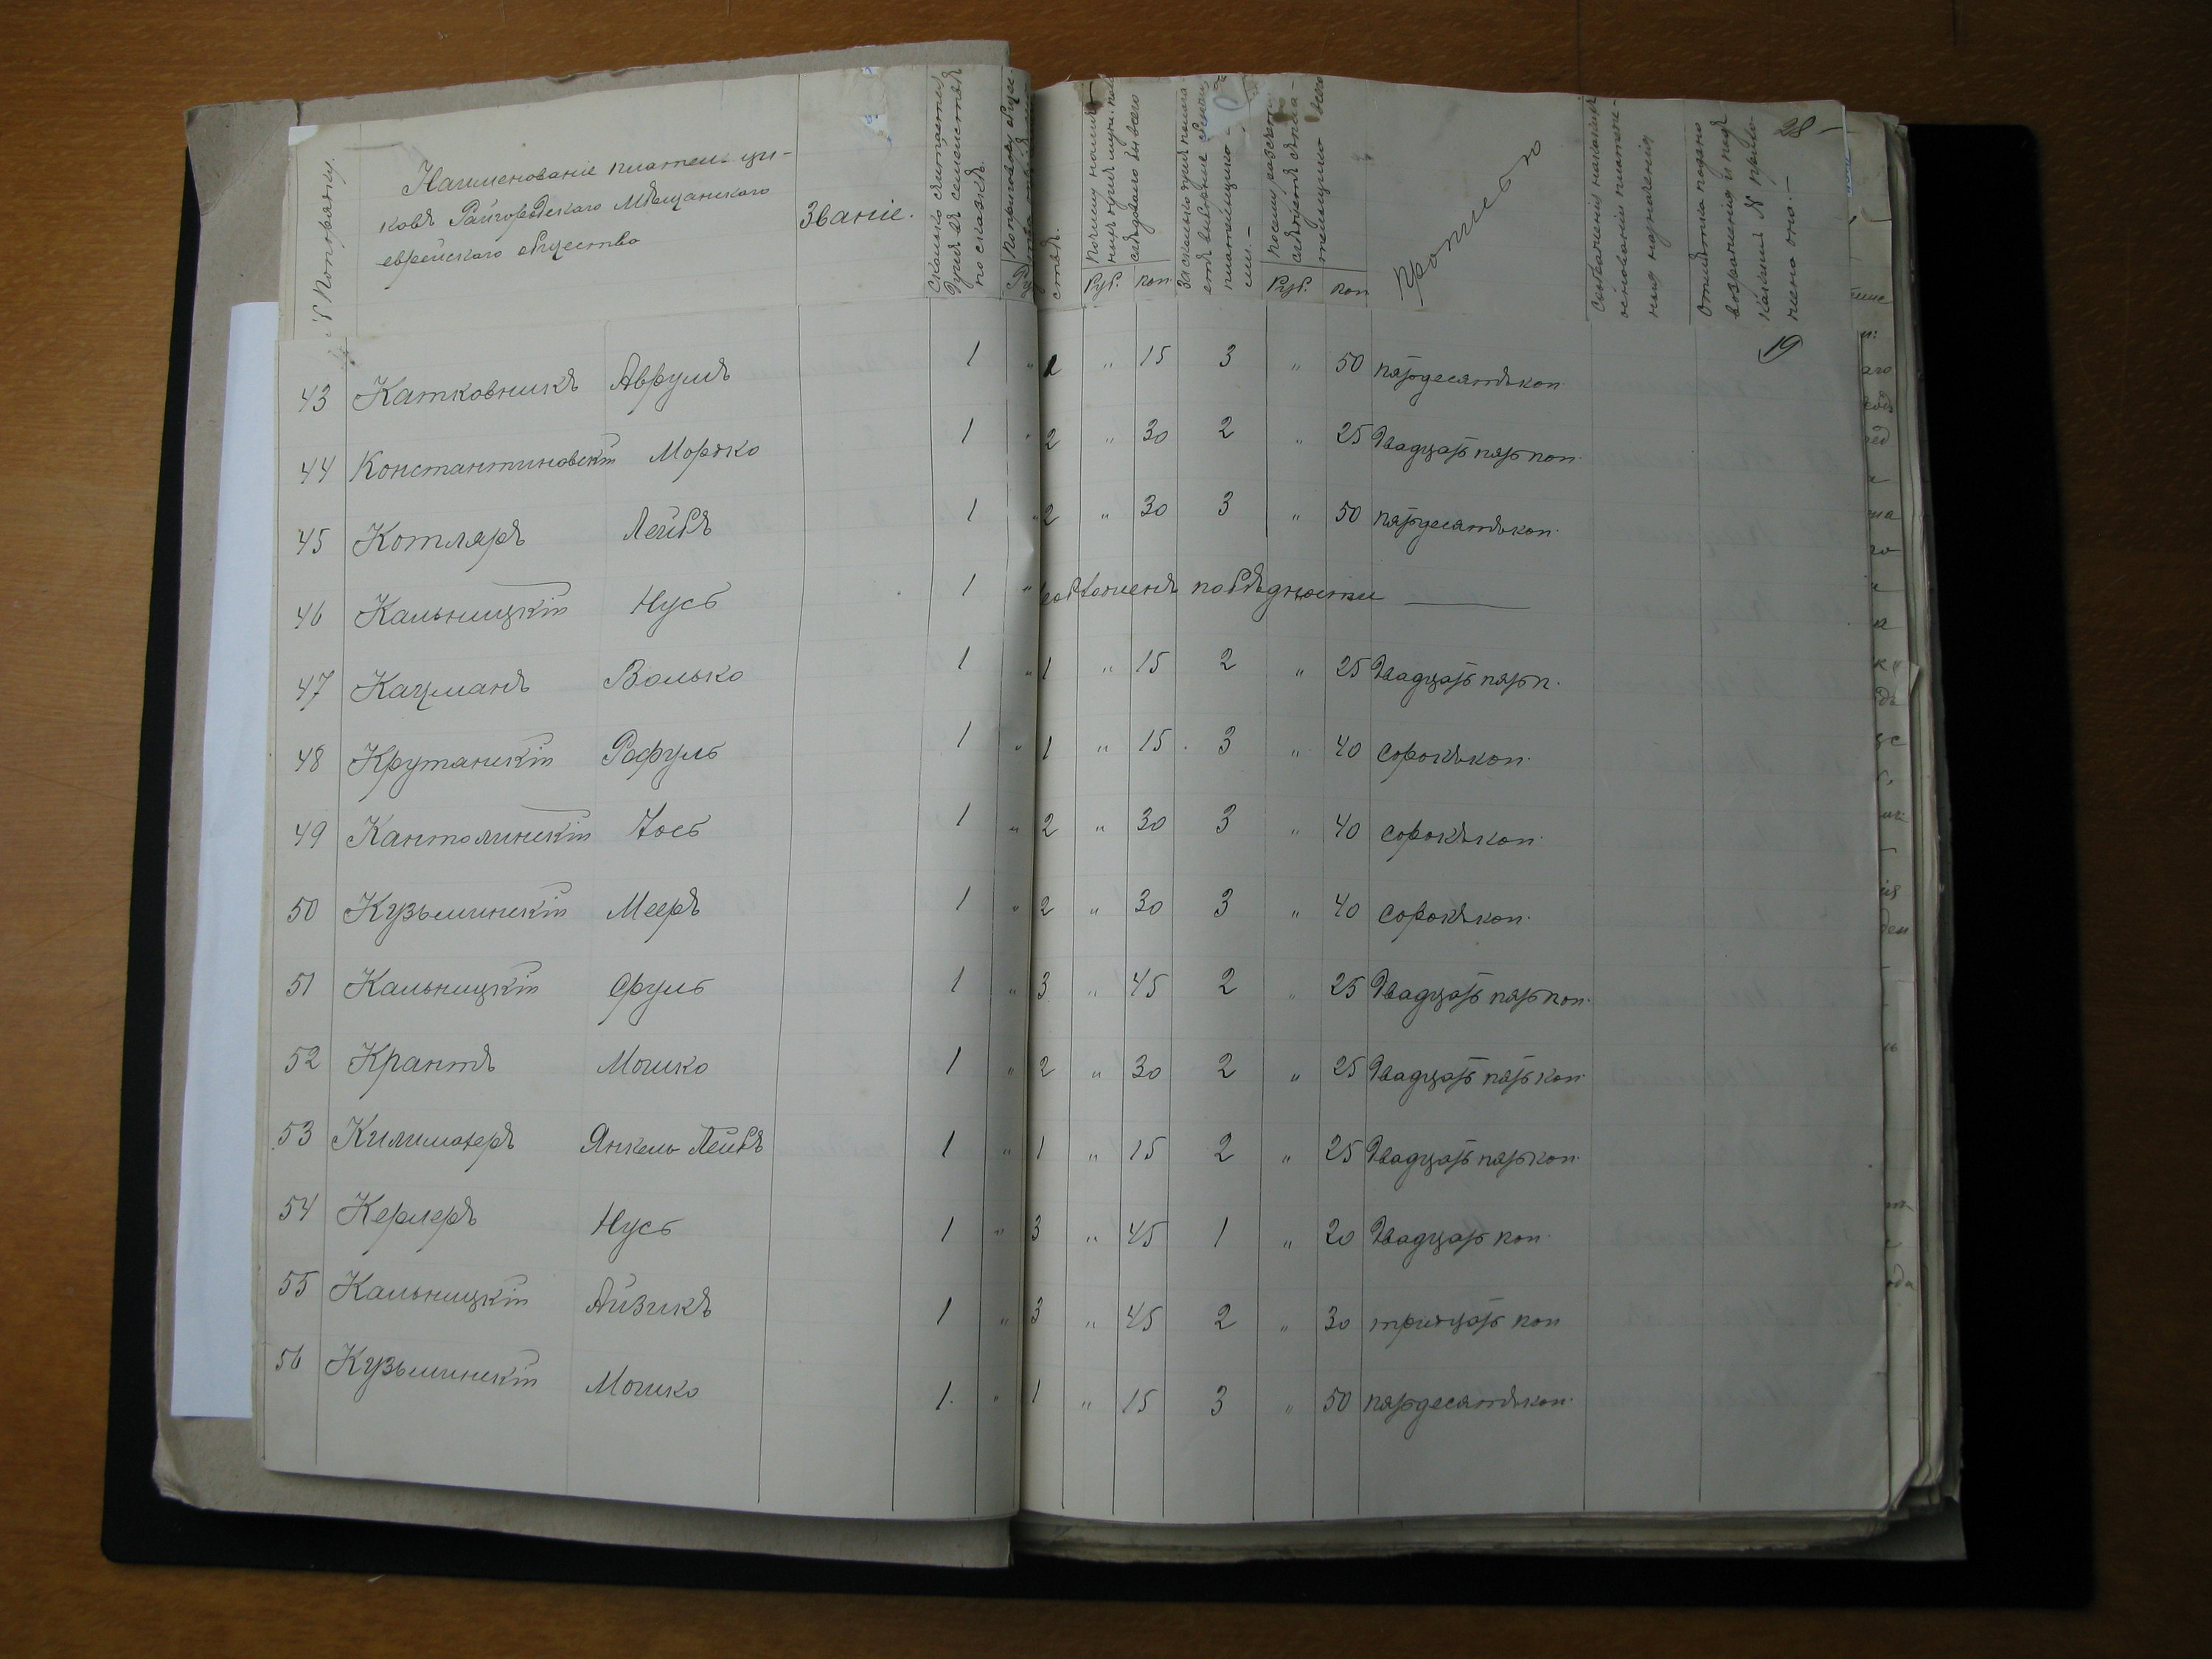 28 –
№ По порядку.
Наименованіе плательщи-
ковъ Райгородскаго Мѣщанскаго
еврейскаго общества
Званіе.
Сколько считается
душъ въ семействѣ
по сказкѣ.
Руб. коп
Руб. коп
Прописью
Соображенія на какомъ
основаніи
ныя назначенія
Отмѣтка подано
возраженія и подъ
какимъ № прило-
жено оно. –
19
43 Катковникъ Аврумъ 1 " 1 " 15 3 " 50 пятьдесятъ коп.
44 Константиновскій Мордко 1 " 2 " 30 2 " 25 Двадцать пять коп.
45 Котляръ Лейбъ 1 " 2 " 30 3 " 50 пятьдесятъ коп.
46 Кальницкій Нусь 1 " по бѣдности
47 Кацманъ Волько 1 " 1 " 15 2 " 25 Двадцать пять к.
48 Крутянскій Рафуль 1 " 1 " 15 3 " 40 сорокъ коп.
49 Кантолинскій Іось 1 " 2 " 30 3 " 40 сорокъ коп.
50 Кузьминскій Мееръ 1 " 2 " 30 3 " 40 сорокъ коп.
51 Кальницкій Сруль 1 " 3 " 45 2 " 25 Двадцать пять коп.
52 Крантъ Мошко 1 " 2 " 30 2 " 25 Двадцать пять коп.
53 Янкель Лейбъ 1 " 1 " 15 2 " 25 Двадцать пять коп.
54 Керлеръ Нусь 1 " 3 " 45 1 " 20 Двадцать коп
55 Кальницкій Айзикъ 1 " 3 " 45 2 " 30 тридцать коп
56 Кузьминскій Мошко 1. " 1 " 15 3 " 50 пятьдесятъ коп.